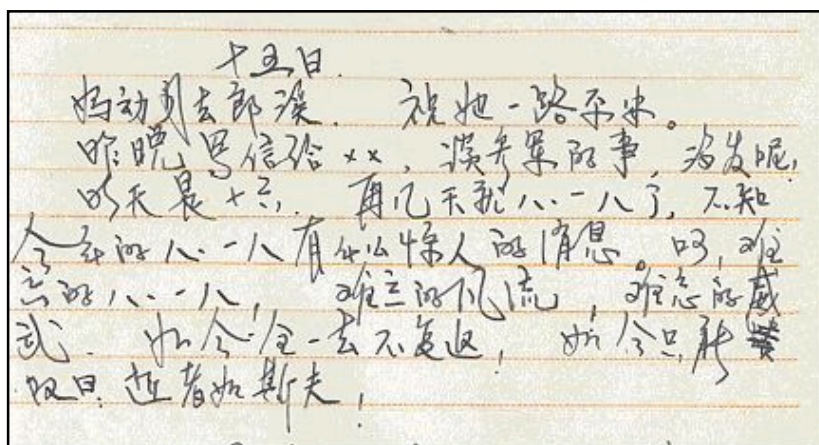 十五日.
妈动身去郎溪. 祝她一路平安。
昨晚写信给××, 谈参军的事, 没发呢.
明天是十六. 再几天就八.一八了, 不知
今年的八.一八有什么惊人的消息。呵, 难
忘的八.一八, 难忘的风流, 难忘的威
武. 如今全一去不复返, 如今只能
叹曰 逝者如斯夫!